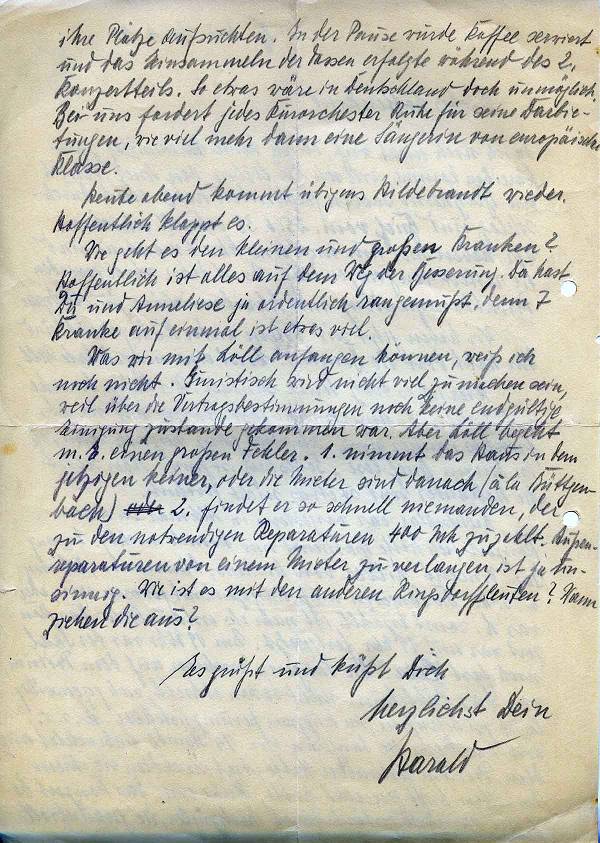 ihre Plätze aufsuchten. In der Pause wurde Kaffee serviert
und das Einsammeln der Tassen erfolgte während des 2.
Konzertteils. So etwas wäre in Deutschland doch unmöglich.
Bei uns fordert jedes Kurorchester Ruhe für seine Darbie-
tungen, wie viel mehr dann eine Sängerin von europäischer
Klasse.
Heute abend kommt übigens Hildebrandt wieder.
Hoffentlich klappt es.
Wie geht es den kleinen und großen Kranken?
Hoffentlich ist alles auf dem Weg der Besserung. Da hast
Du und Anneliese ja ordentlich rangemußt, denn 7
Kranke auf einmal ist etwas viel.
Was wir mit Löll anfangen können, weiß ich
noch nicht. Juristisch wird nicht viel zu machen sein,
weil über die Vertragsbestimmungen noch keine endgültige
Einigung zustande gekommen war. Aber Löll begeht
m. E. einen großen Fehler. 1. nimmt das Haus in dem
jetzigen keiner, oder die Mieter sind danach (à la Büttgen-
bach) 2. findet er so schnell niemanden, der
zu den notwendigen Reparaturen 400 Mk zuzahlt. Außen-
reparaturen von einem Mieter zu verlangen ist ja Un-
sinnig. Wie ist es mit den anderen Ringsdorffleuten? Wann
ziehen die aus?
Es grüßt und küßt Dich
herzlichst Dein
Harald